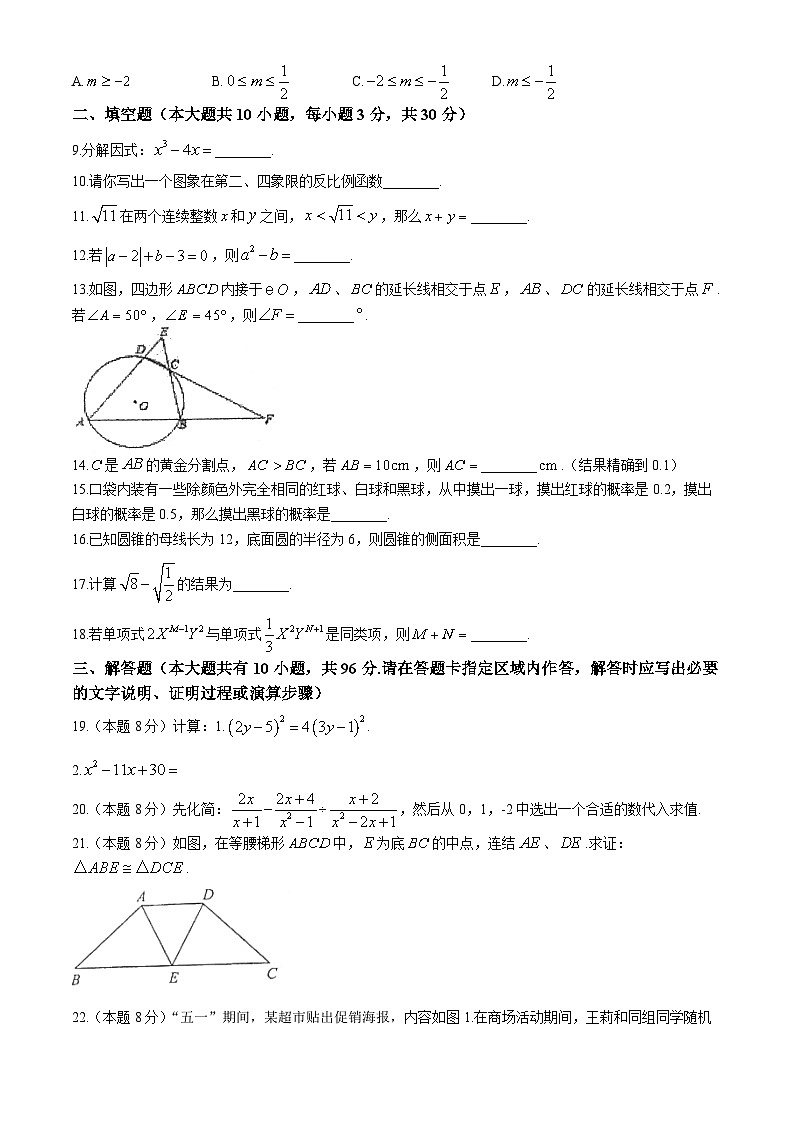 A. m ≥ −2 B. 0 ≤ m ≤ 1/2 C. −2 ≤ m ≤ −1/2 D. m ≤ −1/2
二、填空题（本大题共 10 小题，每小题 3 分，共 30 分）
9.分解因式：x³ − 4x = ________.
10.请你写出一个图象在第二、四象限的反比例函数________.
11. √11 在两个连续整数 x 和 y 之间，x < √11 < y，那么 x + y = ________.
12.若 |a − 2| + b − 3 = 0，则 a² − b = ________.
13.如图，四边形 ABCD 内接于 ⊖O，AD、BC 的延长线相交于点 E，AB、DC 的延长线相交于点 F.
若 ∠A = 50°，∠E = 45°，则∠F = ________°.
E
D
C
O
A
B
F
14. C 是 AB 的黄金分割点，AC > BC，若 AB = 10cm，则 AC = ________cm.（结果精确到 0.1）
15.口袋内装有一些除颜色外完全相同的红球、白球和黑球，从中摸出一球，摸出红球的概率是 0.2，摸出
白球的概率是 0.5，那么摸出黑球的概率是________.
16.已知圆锥的母线长为 12，底面圆的半径为 6，则圆锥的侧面积是________.
17.计算 √8 − √(1/2) 的结果为________.
18.若单项式 2X^(M−1)Y² 与单项式 1/3 X²Y^(N+1) 是同类项，则 M + N = ________.
三、解答题（本大题共有 10 小题，共 96 分.请在答题卡指定区域内作答，解答时应写出必要
的文字说明、证明过程或演算步骤）
19.（本题 8 分）计算：1. (2y − 5)² = 4(3y − 1)².
2. x² − 11x + 30 =
20.（本题 8 分）先化简：2x/(x+1) − (2x+4)/(x²−1) ÷ (x+2)/(x²−2x+1)，然后从 0，1，-2 中选出一个合适的数代入求值.
21.（本题 8 分）如图，在等腰梯形 ABCD 中，E 为底 BC 的中点，连结 AE、DE.求证：
△ABE ≅ △DCE.
A
D
B
E
C
22.（本题 8 分）“五一”期间，某超市贴出促销海报，内容如图 1.在商场活动期间，王莉和同组同学随机